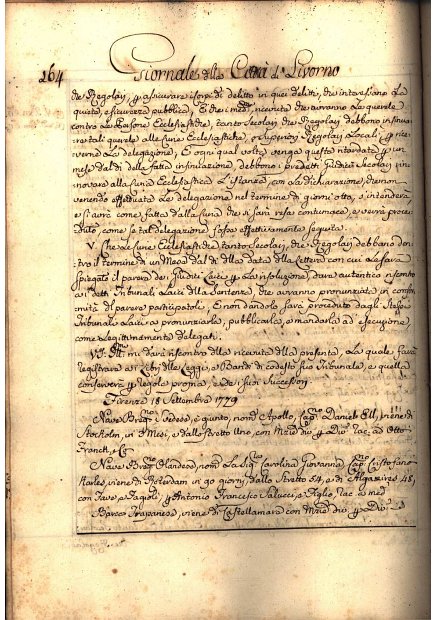 264 Giornale della Città di Livorno
che Regolari, p assicurare i corpi di delitto in quei delitti, che interessano la
quiete, e sicurezza pubblica, E che i med.mi, ricevute che avranno le querele
contro le Persone Ecclesiastiche, tanto Secolari, che Regolari debbono insinua
re tali querele alle Curie Ecclesiastiche, o Superiori Regolari Locali, p rice
verne la delegazione, E ogni qual volta venga questa ritardata p un
mese dal dì della fatta insinuazione, debbono i predetti Giudici Secolari rin
novare alla Curia Ecclesiastica l'Istanza, con la dichiarazione, che non
venendo effettuata la delegazione nel termine di giorni otto, s'intenderà
e si avrà come fatta dalla Curia che si sarà resa contumace, e verrà proce
duto come se tal delegazione fosse effettivamente seguita.
V. Che le Curie Ecclesiastiche tanto Secolari, che Regolari debbano den
tro il termine di un Mese dal dì della data della Lettera con cui le sarà
spiegato il parere dei Giudici Laici p la risoluzione, dare autentico riscontro
ai detti Tribunali Laici della Sentenza, che avranno pronunziata in confor
mità del parere partecipatole, E non dandolo sarà proceduto dagli Stessi
Tribunali Laici a pronunziarla, pubblicarla, e mandarla ad esecuzione,
come Legittimamente Delegati.
VS. Ill.ma mi darà riscontro della ricevuta della presente, la quale farà
registrare ai Libri delle Leggi, e Bandi di codesto suo Tribunale, e quella
conserverà p regola propria, e de' suoi Successori
Firenze 18 Settembre 1779
Nave Svedese, nom.a Apollo, Cap.no Daniele Ell, viene di
Stocholm, in Mesi, e dallo Stretto Uno, con Mrzie div.e p Div.i Rac. ad Otto
Franck, e C.
Nave Olandese, nom.a La Sig.ra Carolina Giovanna, Cap.no Cristofano
viene di Roterdam in 90 giorni, dallo Stretto 54, e di Algazires 48,
con Fave, e Fagioli p Antonio Francesco Salucci, e Figlio, Rac. a med.
Barco Trapanese, viene di Castellamare con Mrzie div.e p Div.i